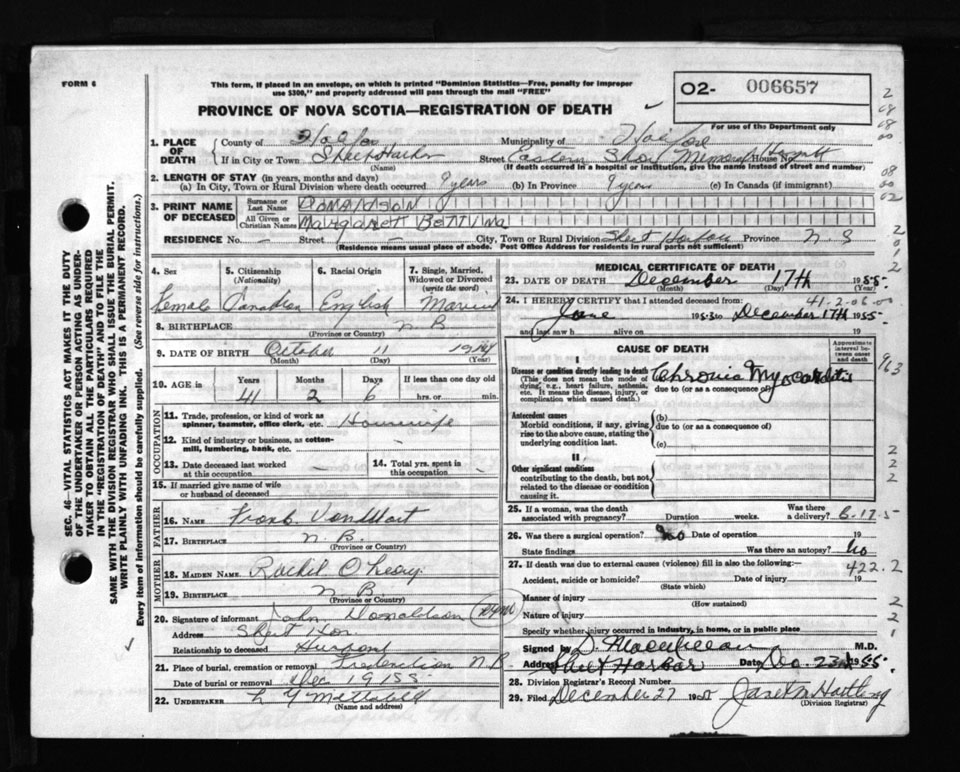 FORM 6
This form, if placed in an envelope, on which is printed "Dominion Statistics—Free, penalty for improper
use $300," and properly addressed will pass through the mail "FREE"
PROVINCE OF NOVA SCOTIA—REGISTRATION OF DEATH
O2- 006657
For use of the Department only
1. PLACE OF DEATH
County of Halifax Municipality of
If in City or Town Sheet Harbor Street Eastern Shore Memorial House No. Hospital
(Name) (If death occurred in a hospital or institution, give the name instead of street and number)
2. LENGTH OF STAY (in years, months and days)
(a) In City, Town or Rural Division where death occurred 9 years (b) In Province 9 years (c) In Canada (if immigrant)
3. PRINT NAME OF DECEASED
Surname or Last Name DONALDSON
All Given or Christian Names MARGARETT BETTINA
RESIDENCE No. — Street — City, Town or Rural Division Sheet Harbour Province N. S
(Residence means usual place of abode. Post Office Address for residents in rural parts not sufficient)
4. Sex Female
5. Citizenship (Nationality) Canadian
6. Racial Origin English
7. Single, Married, Widowed or Divorced (write the word) Married
8. BIRTHPLACE N B
(Province or Country)
9. DATE OF BIRTH October 11 1914
(Month) (Day) (Year)
10. AGE in Years Months Days If less than one day old
41 2 6 hrs. or min.
OCCUPATION
11. Trade, profession, or kind of work as
spinner, teamster, office clerk, etc. Housewife
12. Kind of industry or business, as cotton-
mill, lumbering, bank, etc. —
13. Date deceased last worked at this occupation —
14. Total yrs. spent in this occupation -
15. If married give name of wife
or husband of deceased
FATHER
16. NAME Frank VanWart
17. BIRTHPLACE N. B.
(Province or Country)
MOTHER
18. MAIDEN NAME Rachel O Leary
19. BIRTHPLACE N B
(Province or Country)
20. Signature of informant John Donaldson
Address Sheet Hbr.
Relationship to deceased Husband
21. Place of burial, cremation or removal Fredericton N.B
Date of burial or removal Dec 19 1955
22. UNDERTAKER
(Name and address)
MEDICAL CERTIFICATE OF DEATH
23. DATE OF DEATH December 17th 1955-
(Month) (Day)
41-2-06-00
24. I HEREBY CERTIFY that I attended deceased from
June 1953 to December 17th 1955-
and last saw h alive on 19
CAUSE OF DEATH
Approximate interval between cause and death
I
Disease or condition directly leading to death
(This does not mean the mode of
dying, e.g., heart failure, asthenia,
etc. It means the disease, injury, or
complication which caused death.)
Chronic Myocarditis
due to (or as a consequence of)
Antecedent causes
Morbid conditions, if any, giving
rise to the above cause, stating the
underlying condition last.
(b)
due to (or as a consequence of)
(c)
II
Other significant conditions
contributing to the death, but not
related to the disease or condition
causing it.
25. If a woman, was the death
associated with pregnancy? Duration weeks. Was there a delivery? 6-17-5
26. Was there a surgical operation? No Date of operation 19
State findings Was there an autopsy? No
27. If death was due to external causes (violence) fill in also the following:
422.2
Accident, suicide or homicide? Date of injury 19
(State which)
Manner of injury
(How sustained)
Nature of injury
Specify whether injury occurred in industry, in home, or in public place
Signed by M.D.
Address Sheet Harbor Date Dec. 23rd 1955.
28. Division Registrar's Record Number
29. Filed December 27 19 Janet M Hartling
(Division Registrar)
SEC. 46—VITAL STATISTICS ACT MAKES IT THE DUTY
OF THE UNDERTAKER OR PERSON ACTING AS UNDER-
TAKER TO OBTAIN ALL THE PARTICULARS REQUIRED
IN THE "REGISTRATION OF DEATH" AND TO FILE THE
SAME WITH THE DIVISION REGISTRAR WHO SHALL ISSUE THE BURIAL PERMIT.
WRITE PLAINLY WITH UNFADING INK. THIS IS A PERMANENT RECORD.
Every item of information should be carefully supplied. (See reverse side for instructions.)
2
08
08
00
08
00
02
2
0
1
2
963
2
2
2
2
2
1